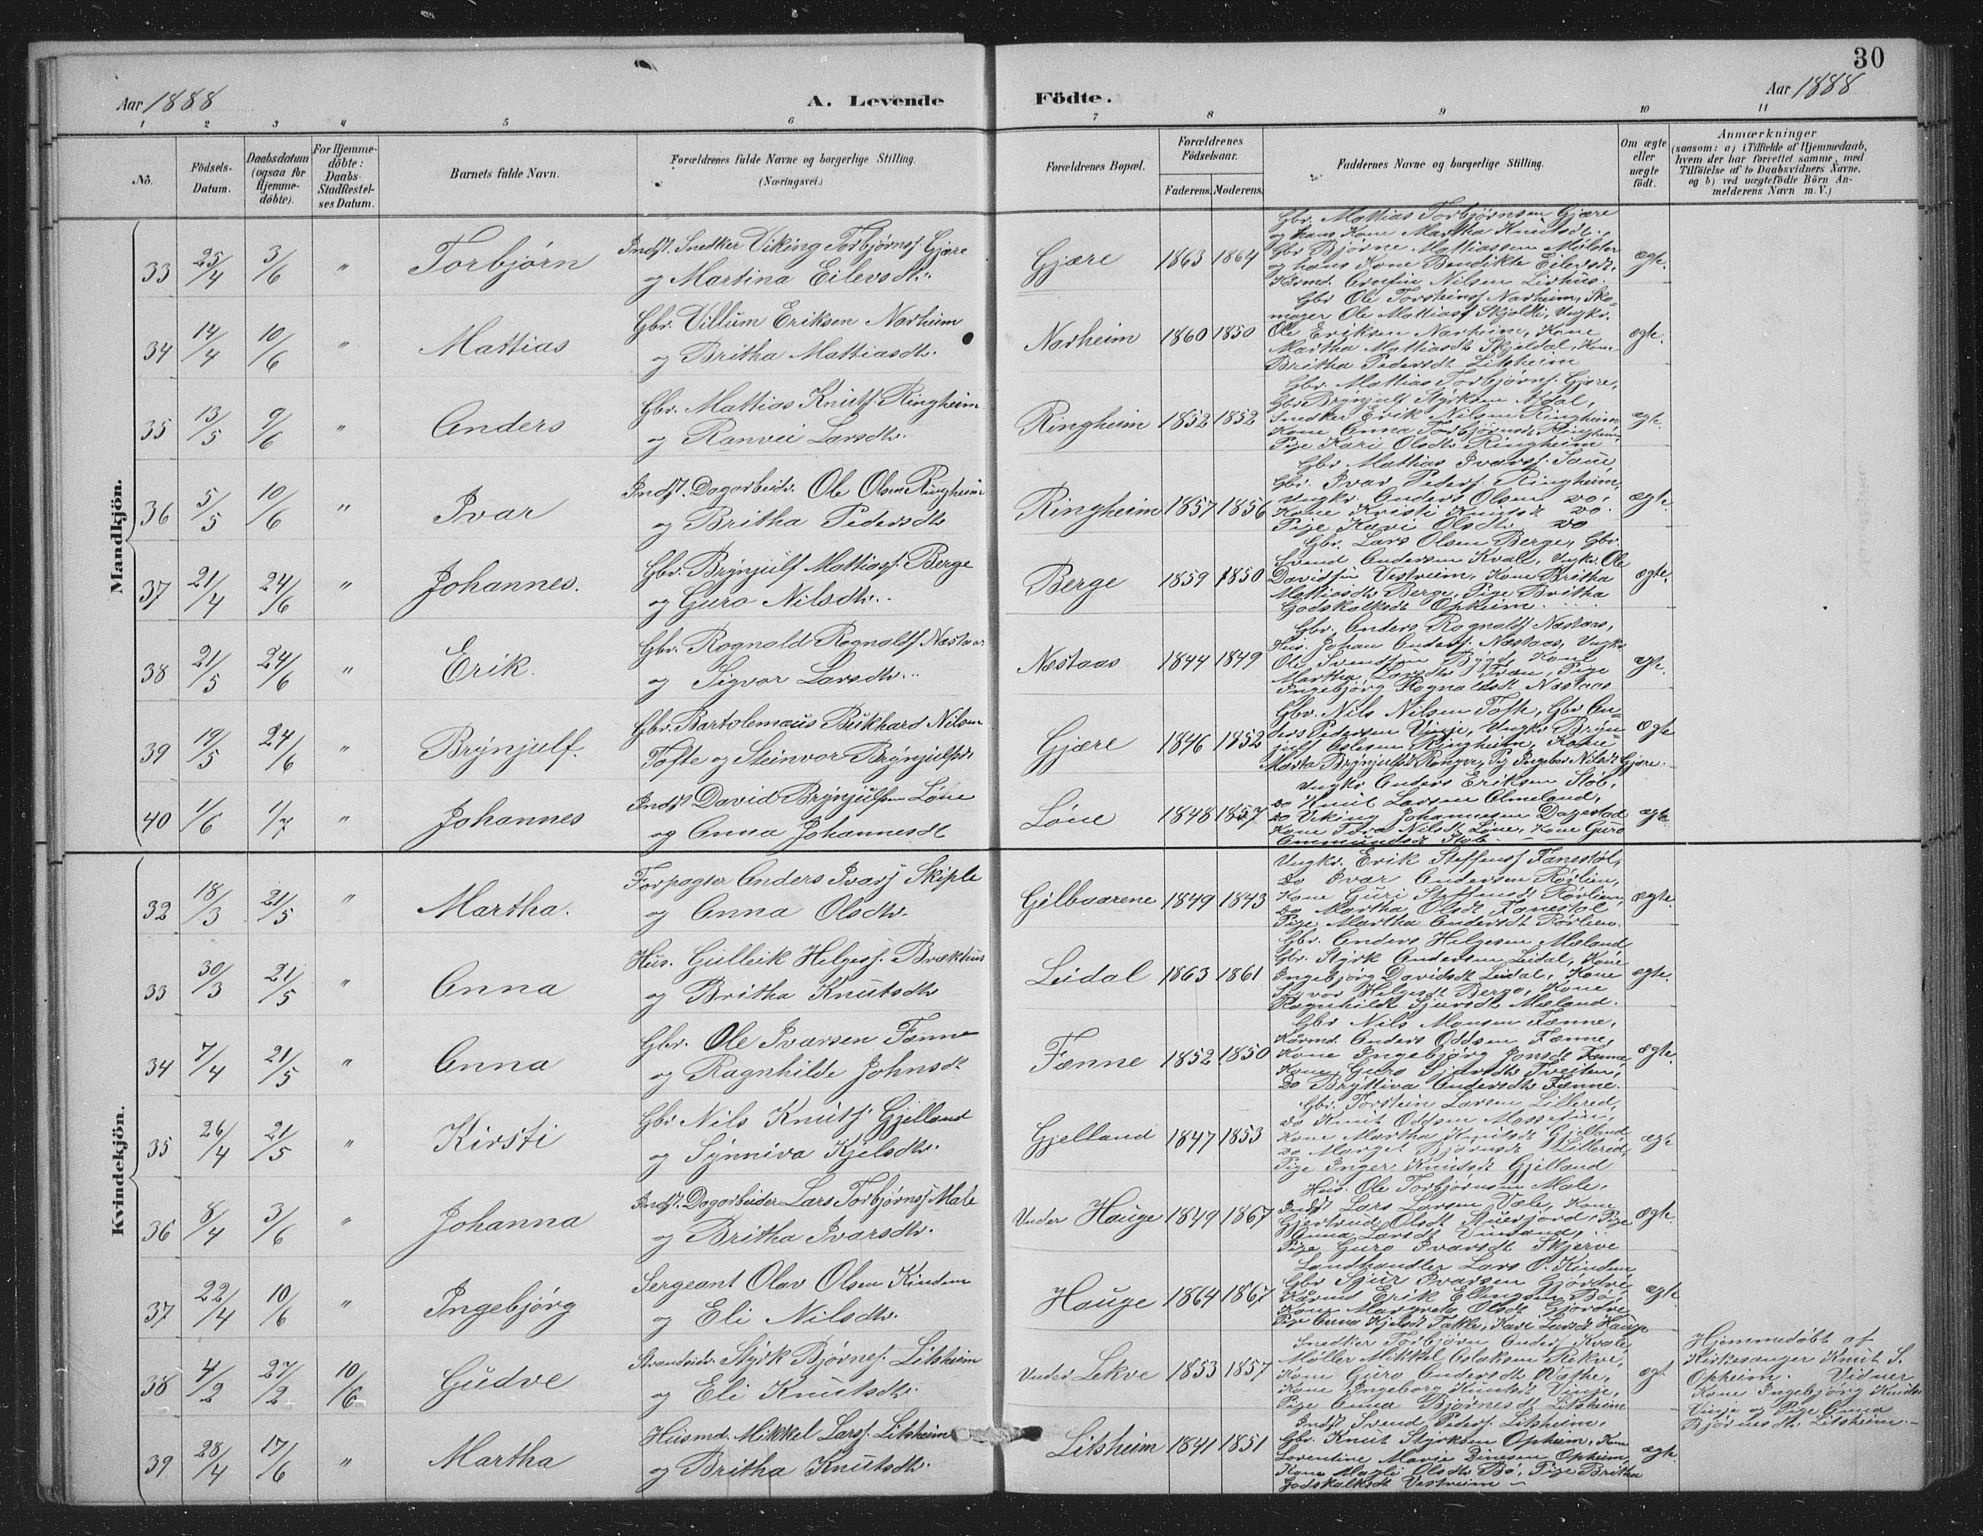 30
Aar 1888
A. Levende Födte.
Aar 1888
1 2 3 4 5 6 7 8 9 10 11
No.
Födsels-Datum.
Daabsdatum (ogsaa for Hjemmedöbte).
For Hjemmedöbte: Daabs-Stadfæstelses Datum.
Barnets fulde Navn.
Forældrenes fulde Navne og borgerlige Stilling. (Næringsvei.)
Forældrenes Bopæl.
Forældrenes Födselsaar.
Faderens. Moderens.
Faddernes Navne og borgerlige Stilling.
Om ægte eller uægte födt.
Anmærkninger
(saasom: a) i Tilfælde af Hjemmedaab, hvem der har forrettet samme, med Tilföielse af to Daabsvidners Navne. og b) ved uægtefödte Börn Anmelderens Navn m. V.)
Mandkjön.
33 25/4 3/6 " Torbjørn
Indst. Snedker Viking Torbjørnss. Gjære
og Martina Eilevsdtr.
Gjære 1863 1864
Gbr. Mattias Torbjørnsen Gjære
og hans Kone Martha Knutsdt.,
Gbr Bjørne Mattiassen Mølster
og hans Kone Bendikte Eilevsdt.
Kårmd. Arnfin Nilsen Lirhus.
ægte.
34 14/4 10/6 " Mattias
Gbr. Villum Eriksen Norheim
og Britha Mattiasdtr.
Norheim 1860 1850
Gbr Ole Torsteinss Norheim, Sko-
mager Ole Mattiass Skjolde, Ungkr.
Ole Eriksen Norheim, Kone
Martha Mattiasdt Skjeldal, Kone
Britha Pedersdt Litsheim
ægte.
35 13/5 9/6 " Anders
Gbr. Mattias Knutss Ringheim
og Ranvei Larsdtr.
Ringheim 1852 1852
Gbr. Mattias Torbjørnss. Gjære,
Gbr Brynjulf Styrksen
Snedker Erik Nilsen Ringheim
Kone Anna Torbjørnsdt Ringheim
Pige Kari Olsdtr Ringheim
ægte.
36 5/5 10/6 " Ivar
Indst. Dagarbeidr. Ole Olsen Ringheim
og Britha Pedersdtr
Ringheim 1857 1856
Gbr Mattias Ivarss. Saue,
Gbr. Ivar Pederss Ringheim,
Ungkr. Anders Olsen do.
Kone Kristi Knutsdt do.
Pige Kari Olsdtr do
ægte.
37 21/4 24/6 " Johannes.
Gbr. Brynjulf Mattiass Berge
og Guro Nilsdtr.
Berge 1859 1850
Gbr. Lars Olsen Berge, Gbr
Svend Andersen Kvale, Ungkr. Ole
Davidsen Vestreim, Kone Britha
Mattiasdtr Berge, Pige Britha
Godskalksdt Opheim.
ægte.
38 21/5 24/6 " Erik.
Gbr. Rognald Rognaldss Næstaas
og Sigvor Larsdtr.
Næstaas 1844 1849
Gbr. Anders Rognaldss Næstaas,
Hus. Johan Anderss. Næstaas, Ungkr
Ole Svendsen Bygd, Kone
Martha Larsdtr Træn, Pige
Ingebjørg Rognaldsdt Næstaas
ægte.
39 19/5 24/6 " Brynjulf.
Gbr. Bartolemæus Bukkhard Nilsen
Tofte og Steinvor Brynjulfsdt.
Gjære 1846 1852
Gbr. Nils Nilsen Tofte, Gbr An-
ders Pedersen Vinje, Ungkr Bryn-
julf Olsen Ringheim, Kone
Marta Brynjulfsdt Rongve, Pig Ingebor Nilsdt Gjære.
ægte
40 1/6 1/7 " Johannes
Indst David Brynjulfsen Løne
og Anna Johannesdt
Løne 1848 1857
Ungkr. Anders Eriksen Støb,
do Knut Larsen Almeland,
do Viking Johannesen Dagestad
Kone Tora Nilsdt Løne, Kone Guro
Ammundsdt Støb.
ægte.
Kvindekjön.
32 18/3 21/5 " Martha.
Forpagter Anders Ivarss Skiple
og Anna Olsdtr.
Gilbvarene 1849 1843
Ungkr. Erik Steffenss Fænestøl,
do Ivar Andersen Rørlien,
Kone Guri Steffensdt Rørlien,
do Martha Olsdt Fænestøl
Pige Martha Andersdt Rørlien.
ægte.
33 30/3 21/5 " Anna
Hus. Gulleik Helgess. Brækhus
og Britha Knutsdtr
Leidal 1863 1861
Gbr. Anders Helgesen Mæland
Gbr. Styrk Andersen Leidal, Kone
Ingebjørg Davidsdt Leidal, Kone
Sigvor Helgesdt Berge, Kone
Ragnhilda Sjursdt Mæland.
ægte.
34 7/4 21/5 " Anna
Gbr. Ole Ivarsen Fænne
og Ragnhilde Johnsdt
Fænne 1852 1850
Gbr Nils Monsen Fænne,
Kårmd. Anders Oddsen Fænne,
Kone Ingebjørg Jonsdt Fænne,
Kone Guro Sjursdtr Tveiten,
do Bryttiva Andersdtr Fænne.
ægte.
35 26/4 21/5 " Kirsti
Gbr Nils Knutss Gjelland
og Synniva Kjelsdtr.
Gjelland 1847 1853
Gbr. Torstein Larsen Lillered,
do Knut Oddsen
Kone Martha Knutsdt Gjelland
do Marget Bjørnsdt Lillered,
Pige Inger Knutsdt Gjelland
ægte
36 8/4 3/6 " Johanna
Indst. Dagarbeider Lars Torbjørnss. Male
og Britha Ivarsdtr.
Under Hauge 1849 1867
Hus. Ole Torbjørnsen Male,
Indst Lars Larsen Vale, Kone
Gjertrud Olsdt Pige
Anna Larsdt
Pige Guro Ivarsdt Skjerve
ægte.
37 22/4 10/6 " Ingebjørg
Sergeant Olav Olsen Kindem
og Eli Nilsdtr.
Hauge 1864 1867
Landhandler Lars O. Kindem
Gbr Sjur Ivarsen Gjørdre,
Kårmd Erik Ellingsen Bø,
Kone Margreta Olsdt Gjørdre
Pige Anna Kjelsdt Takle, Kari Larsdt Hauge
ægte.
38 4/2 27/2 10/6 Gudve
Strandsidr. Styrk Bjørness. Litsheim
og Eli Knutsdtr.
Under Lekve 1853 1857
Snedker Torbjørn Anderss. Kvale,
Møller Mikkel Oslaksen Rekve,
Kone Guro Andersdt Vethe,
Kone Ingeborg Knutsdt Vinje,
Pige Anna Bjørnesdt Litsheim
ægt.
Hjemmedøbt af
Kirkesanger Knut S.
Opheim. Vidner
Kone Ingebjørg Knutsdtr
Vinje og Pige Anna
Bjørnesdtr Litsheim.
39 28/4 17/6 " Martha
Husmd. Mikkel Larss. Litsheim
og Britha Knutsdtr.
Litsheim 1841 1851
Indst Svend Pederss. Litsheim,
Gbr. Knut Styrksen Opheim, Kone
Lorentine Marie Dinesen Opheim,
Kone Magli Olsdt Bø, Pige Britha
Godskalksdt Vestreim
ægte.